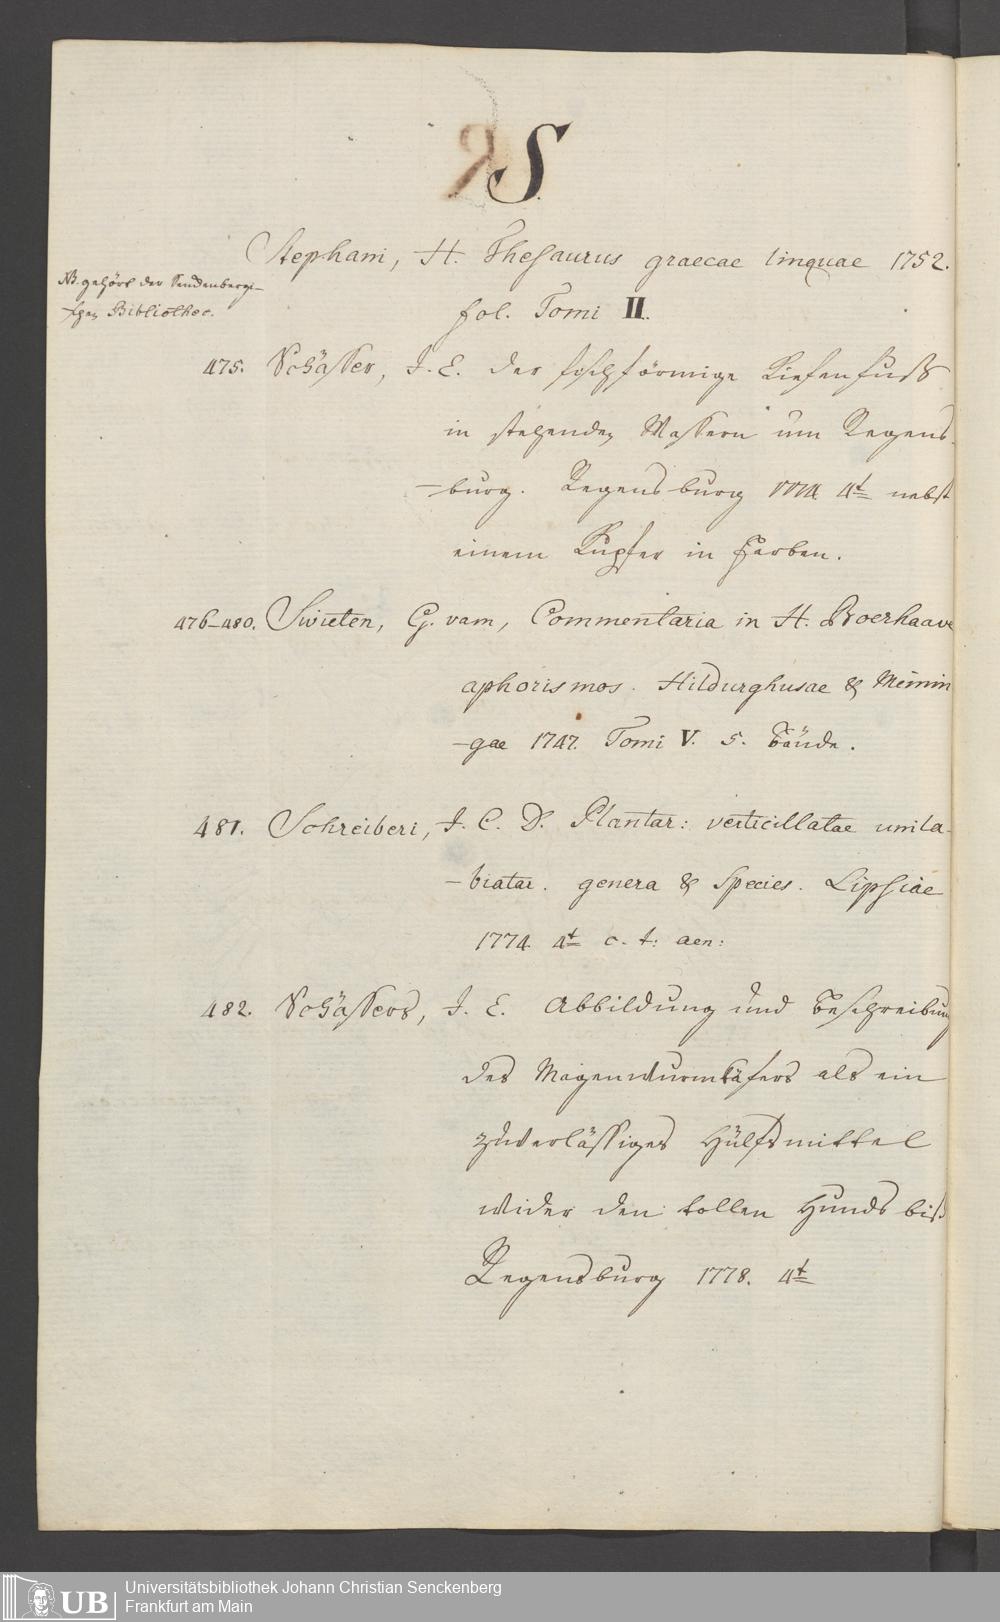 S.
Stephani, H. Thesaurus graecae linquae 1752.
NB. gehört der Senckenbergi-
schen Bibliothec.
fol. Tomi II.
475. Schäffer, J. C. der fischförmige Kiefenfuß
in stehenden Wassern um Regens-
-burg. Regensburg 1774. 4t nebst
einem Kupfer in Farben.
476-480. Swieten, G. vam, Commentaria in H. Boerhaave
aphorismos. Hildurghusae & Meinin
-gae 1747. Tomi V. 5. Bände.
481. Schreiberi, J. C. D. Plantar: verticillatae unila-
-biatar. genera & Species. Lipsiae
1774. 4t c. t: aen:
482. Schäffers, J. C. Abbildung und Beschreibung
des Mayenwurmkäfers als ein
zuverläßiges Hülfsmittel
wider den tollen Hundsbiß
Regensburg 1778. 4t
Universitätsbibliothek Johann Christian Senckenberg
UB Frankfurt am Main